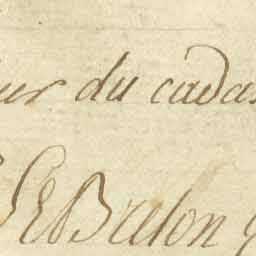 eur du cadas
Le Breton